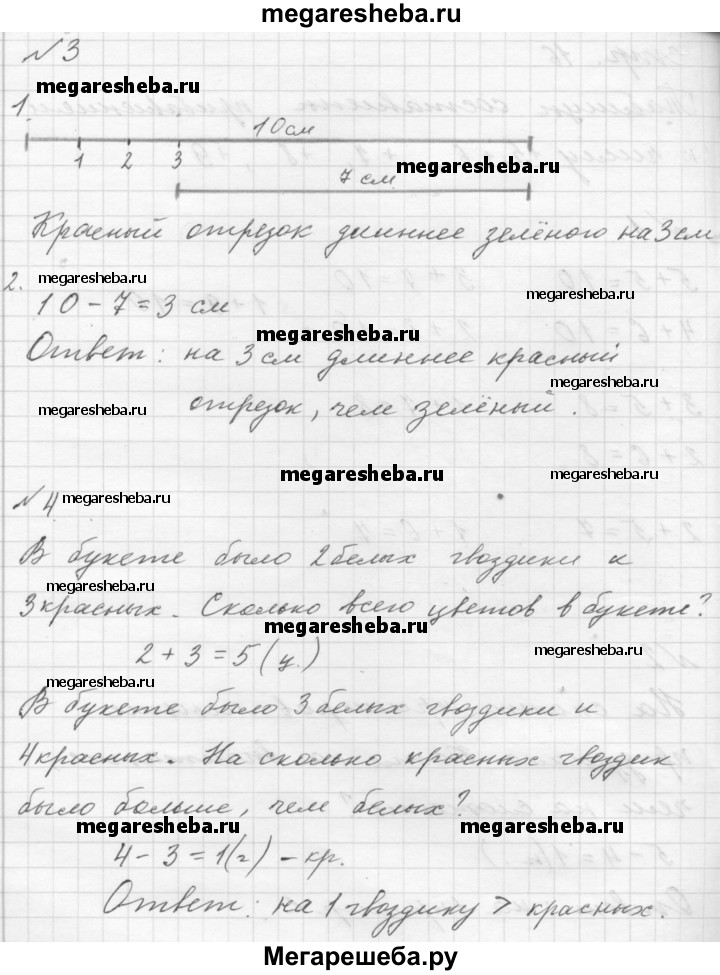 megaresheba.ru
№3
megaresheba.ru
1.
10 см
1 2 3
megaresheba.ru
7 см
Красный отрезок длиннее зелёного на 3 см
2. megaresheba.ru
megaresheba.ru
10 - 7 = 3 см
megaresheba.ru
Ответ: на 3 см длиннее красный
megaresheba.ru
megaresheba.ru отрезок, чем зелёный.
megaresheba.ru
megaresheba.ru
№4 megaresheba.ru
В букете было 2 белых гвоздики и
megaresheba.ru
3 красных. Сколько всего цветов в букете?
megaresheba.ru
2 + 3 = 5 (ц.)
megaresheba.ru
megaresheba.ru
В букете было 3 белых гвоздики и
4 красных. На сколько красных гвоздик
было больше, чем белых?
megaresheba.ru megaresheba.ru
4 - 3 = 1 (г) - кр.
Ответ: на 1 гвоздику > красных.
Мегарешеба.ру